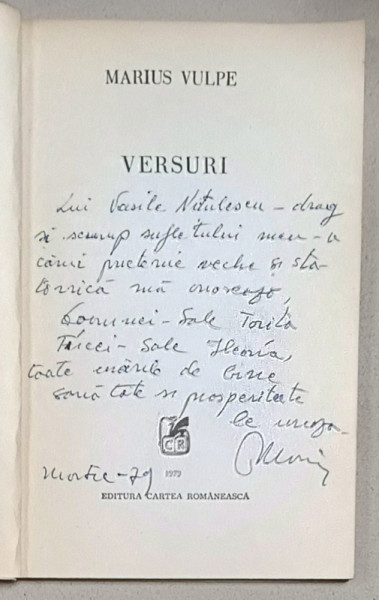 MARIUS VULPE
VERSURI
Lui Vasile Nițulescu – drag
și scump sufletului meu – a
cărui prietenie veche și sta-
tornică mă onorează,
Doamnei – Sale
Fiicei – Sale Ileana,
toate urările de bine
sănătate și prosperitate
le urează
CR
1979
Martie – 79
EDITURA CARTEA ROMÂNEASCĂ